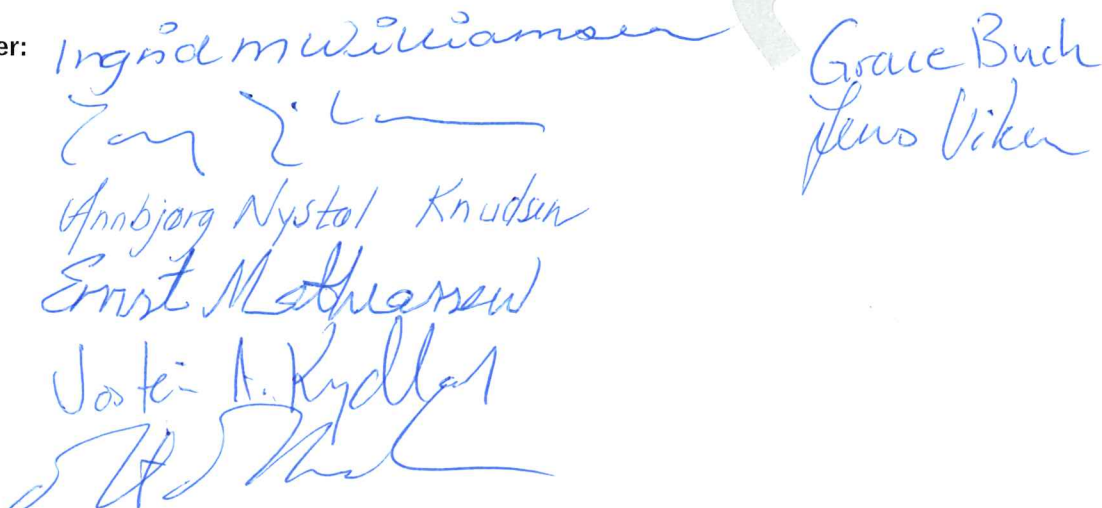 er: Ingrid M Williamsen
Annbjørg Nystøl Knudsen
Ernst Mathiassen
Jostein A. Kydland
Grace Buch
Jens Viken